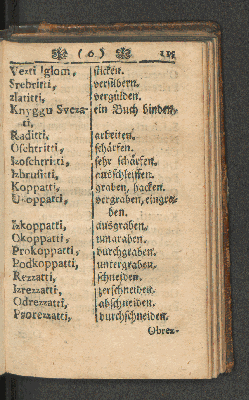 ( o. )
Vezti Iglom, sticken.
Srebritti, versilbern.
zlatitti, vergülden.
Knyggu Sveza- ein Buch binden.
ti,
Raditti, arbeiten.
Oschtritti, schärfen.
Izoschtritti, sehr schärfen.
Izbrusitti, ausschleiffen.
Koppatti, graben, hacken.
Ukoppatti, vergraben, eingra-
ben.
Izkoppatti, ausgraben.
Okoppatti, umgraben.
Prokoppatti, durchgraben.
Podkoppatti, untergraben.
Rezzatti, schneiden.
Izrezzatti, zerschneiden.
Odrezzatti, abschneiden.
Prorezzatti, durchschneiden.
Obrez-